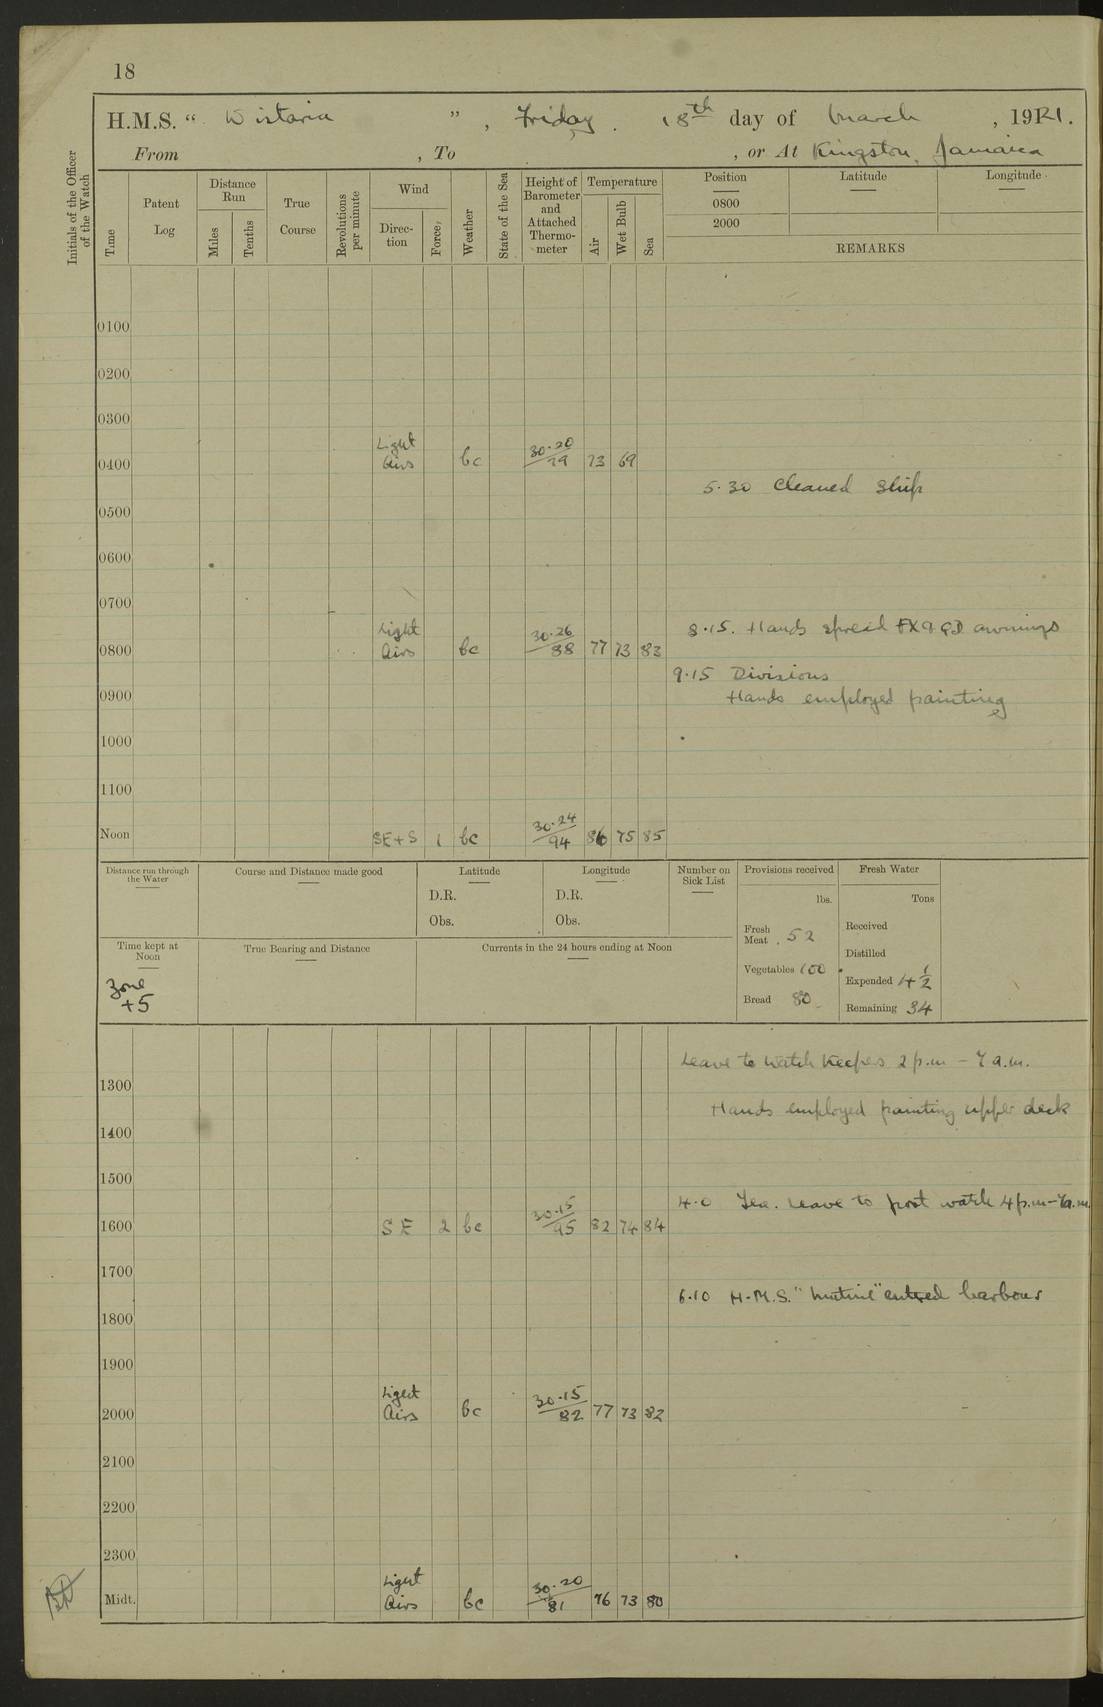 18
H.M.S. “ Wistaria ”, Friday. 18th day of March, 1921.
From , To , or At Kingston, Jamaica
Initials of the Officer of the Watch
Time
Patent Log
Distance Run
Miles
Tenths
True Course
Revolutions per minute
Wind
Direc-tion
Force
Weather
State of the Sea
Height of Barometer and Attached Thermo-meter
Temperature
Air
Wet Bulb
Sea
Position
Latitude
Longitude
0800
2000
REMARKS
0100
0200
0300
Light
0400 Airs bc 30.20/79 73 69
5.30 Cleaned Ship
0500
0600
0700
8.15. Hands spread FX & QD awnings
Light
0800 Airs bc 30.26/88 77 73 83
9.15 Divisions
0900 Hands employed painting
1000
1100
Noon SE+S 1 bc 30.24/94 86 75 85
Distance run through the Water
Course and Distance made good
Latitude
D.R.
Obs.
Longitude
D.R.
Obs.
Number on Sick List
Provisions received
lbs.
Fresh Meat 52
Vegetables 100
Bread 80
Fresh Water
Tons
Received
Distilled
Expended 4 1/2
Remaining 34
Time kept at Noon
Zone
+5
True Bearing and Distance
Currents in the 24 hours ending at Noon
Leave to watch keepers 2 p.m – 7 a.m.
1300
Hands employed painting upper deck
1400
1500
4.0 Tea. Leave to port watch 4 p.m–7a.m.
1600 SE 2 bc 30.15/95 82 74 84
1700
6.10 H.M.S. "Mutine" entred harbour
1800
1900
Light
2000 Airs bc 30.15/82 77 73 82
2100
2200
2300
Light
Midt. Airs bc 30.20/81 76 73 80